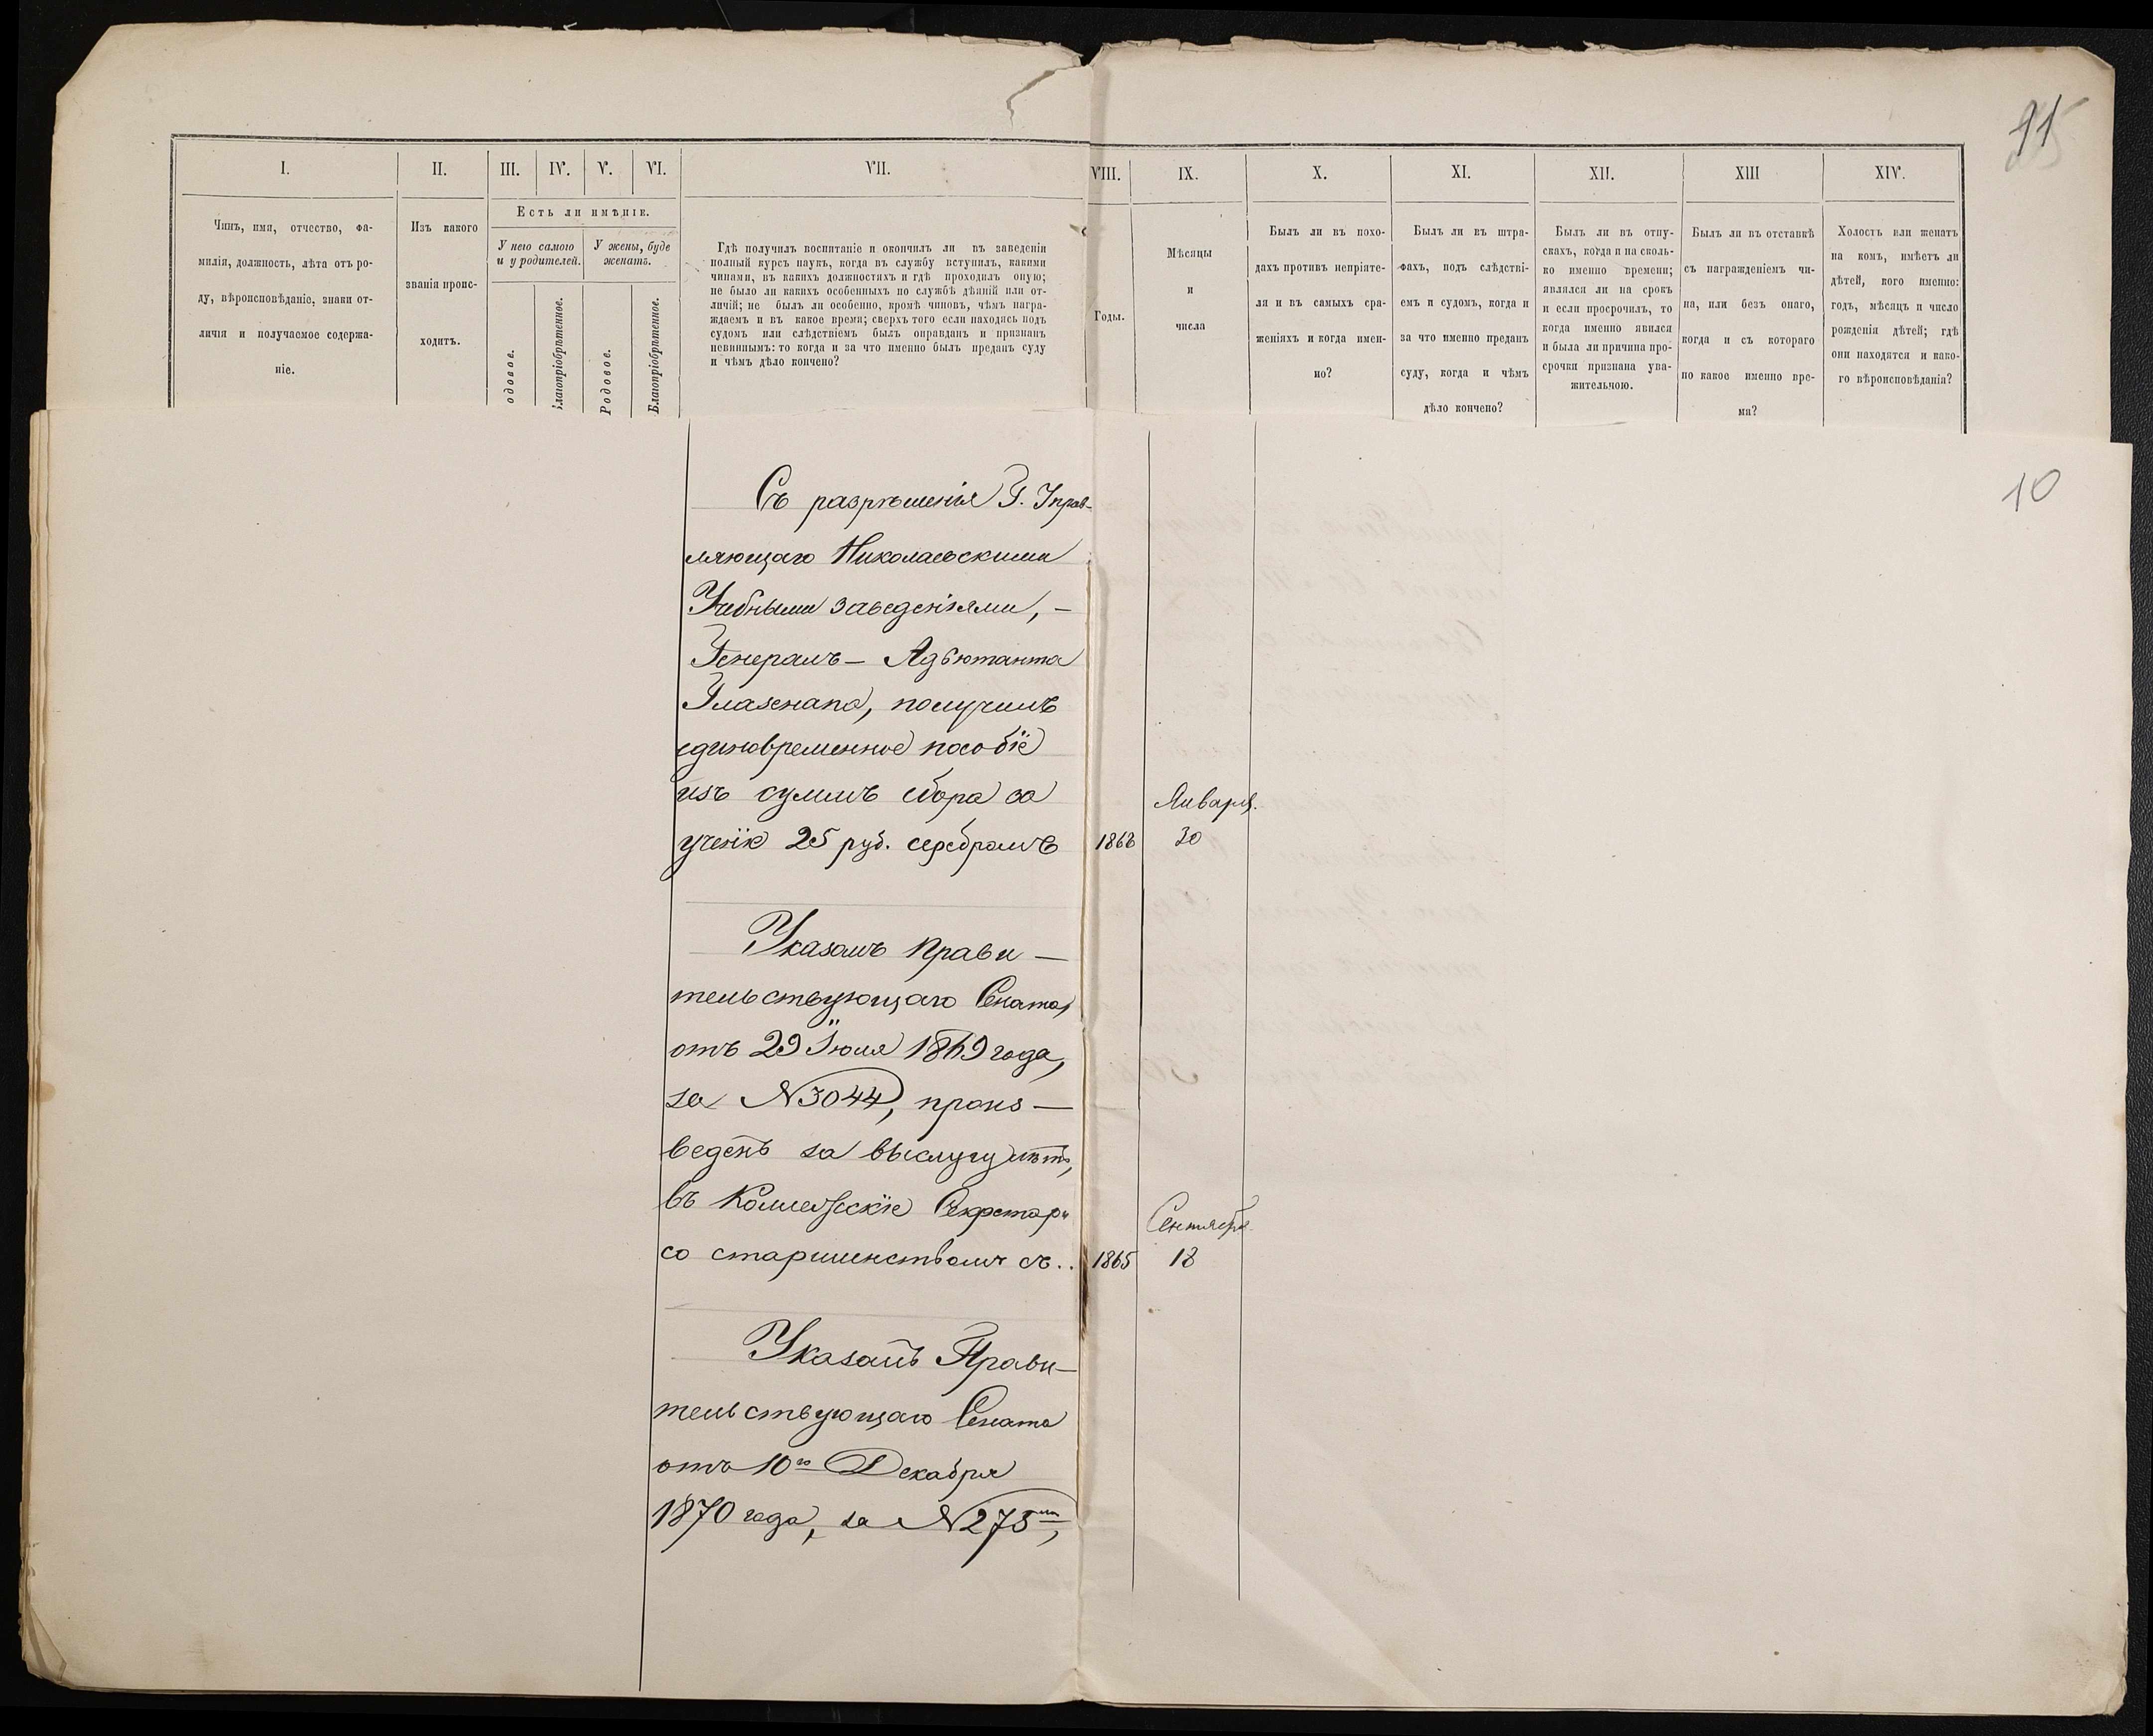 91
I.
II.
III.
IV.
V.
VI.
VII.
VIII.
IX.
X.
XI.
XII.
XIII
XIV.
Чинъ, имя, отчество, фа-
милія, должность, лѣта отъ ро-
ду, вѣроисповѣданіе, знаки от-
личія и получаемое содержа-
ніе.
Изъ какого
званія проис-
ходитъ.
Есть ли имѣніе.
У него самого
и у родителей.
У жены, буде
женатъ.
одовое.
Благопріобрѣтенное.
Родовое.
Благопріобрѣтенное.
Гдѣ получилъ воспитаніе и окончилъ ли въ заведеніи
полный курсъ наукъ, когда въ службу вступилъ, какими
чинами, въ какихъ должностяхъ и гдѣ проходилъ оную;
не было ли какихъ особенныхъ по службѣ дѣяній или от-
личій; не былъ ли особенно, кромѣ чиновъ, чѣмъ награ-
ждаемъ и въ какое время; сверхъ того если находясь подъ
судомъ или слѣдствіемъ былъ оправданъ и признанъ
невиннымъ: то когда и за что именно былъ преданъ суду
и чѣмъ дѣло кончено?
Годы.
Мѣсяцы
и
числа
Былъ ли въ похо-
дахъ противъ непріяте-
ля и въ самыхъ сра-
женіяхъ и когда имен-
но?
Былъ ли въ штра-
фахъ, подъ слѣдстві-
емъ и судомъ, когда и
за что именно преданъ
суду, когда и чѣмъ
дѣло кончено?
Былъ ли въ отпу-
скахъ, когда и на сколь-
ко именно времени;
являлся ли на срокъ
и если просрочилъ, то
когда именно явился
и была ли причина про-
срочки признана ува-
жительною.
Былъ ли въ отставкѣ
съ награжденіемъ чи-
на, или безъ онаго,
когда и съ котораго
по какое именно вре-
мя?
Холостъ или женатъ
на комъ, имѣетъ ли
дѣтей, кого именно:
годъ, мѣсяцъ и число
рожденія дѣтей; гдѣ
они находятся и како-
го вѣроисповѣданія?
10
Съ разрѣшенія Г. Управ-
ляющаго Николаевскими
Учебными заведеніями, –
Генералъ – Адъютанта
Глазенапа, получилъ
единовременное пособіе
изъ суммъ сбора за
ученіе 25 руб. серебромъ
1868
Января
30
Указомъ Прави –
тельствующаго Сената,
отъ 29 Іюля 1869 года,
за № 3044, произ –
веденъ за выслугу лѣтъ,
въ Коллежскіе Секретари
со старшинствомъ съ ..
1865
Сентября
18
Указомъ Прави –
тельствующаго Сената
отъ 10го Декабря
1870 года, за № 275мъ,